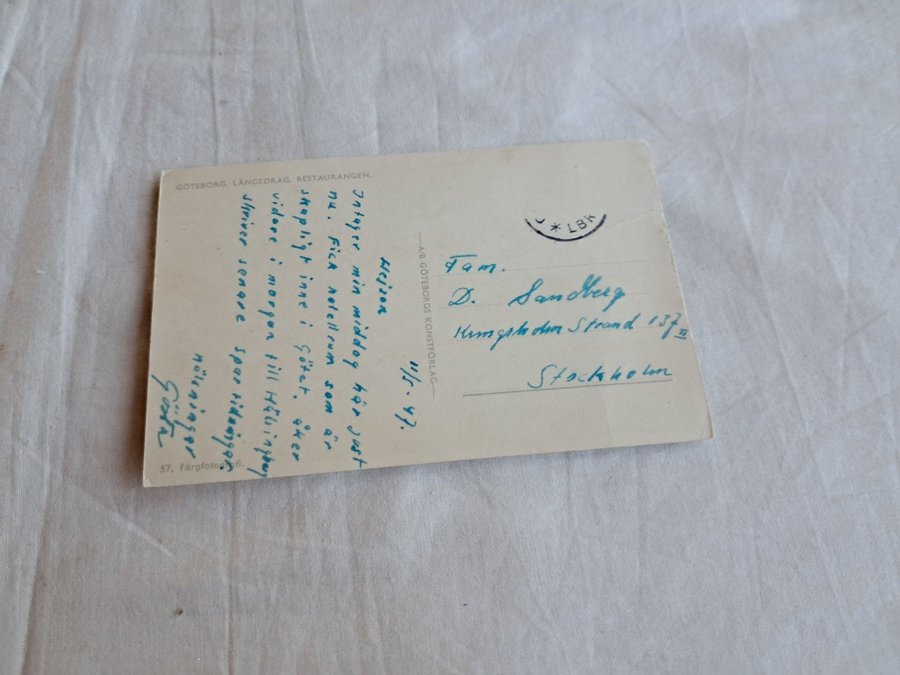 GÖTEBORG. LÅNGEDRAG. RESTAURANGEN.
11/5 - 47.
Hejsan
Intager min middag här just
nu. Fick hotellrum som är
skapligt inne i Götet. åker
vidare i morgon till Hälsingborg
skriver senare spar tidningar
hälsningar
Gösta
57, Färgfotografi.
A/B GÖTEBORGS KONSTFÖRLAG
* LBR
Fam.
D. Sandberg
Kungsholm Strand 137 II
Stockholm